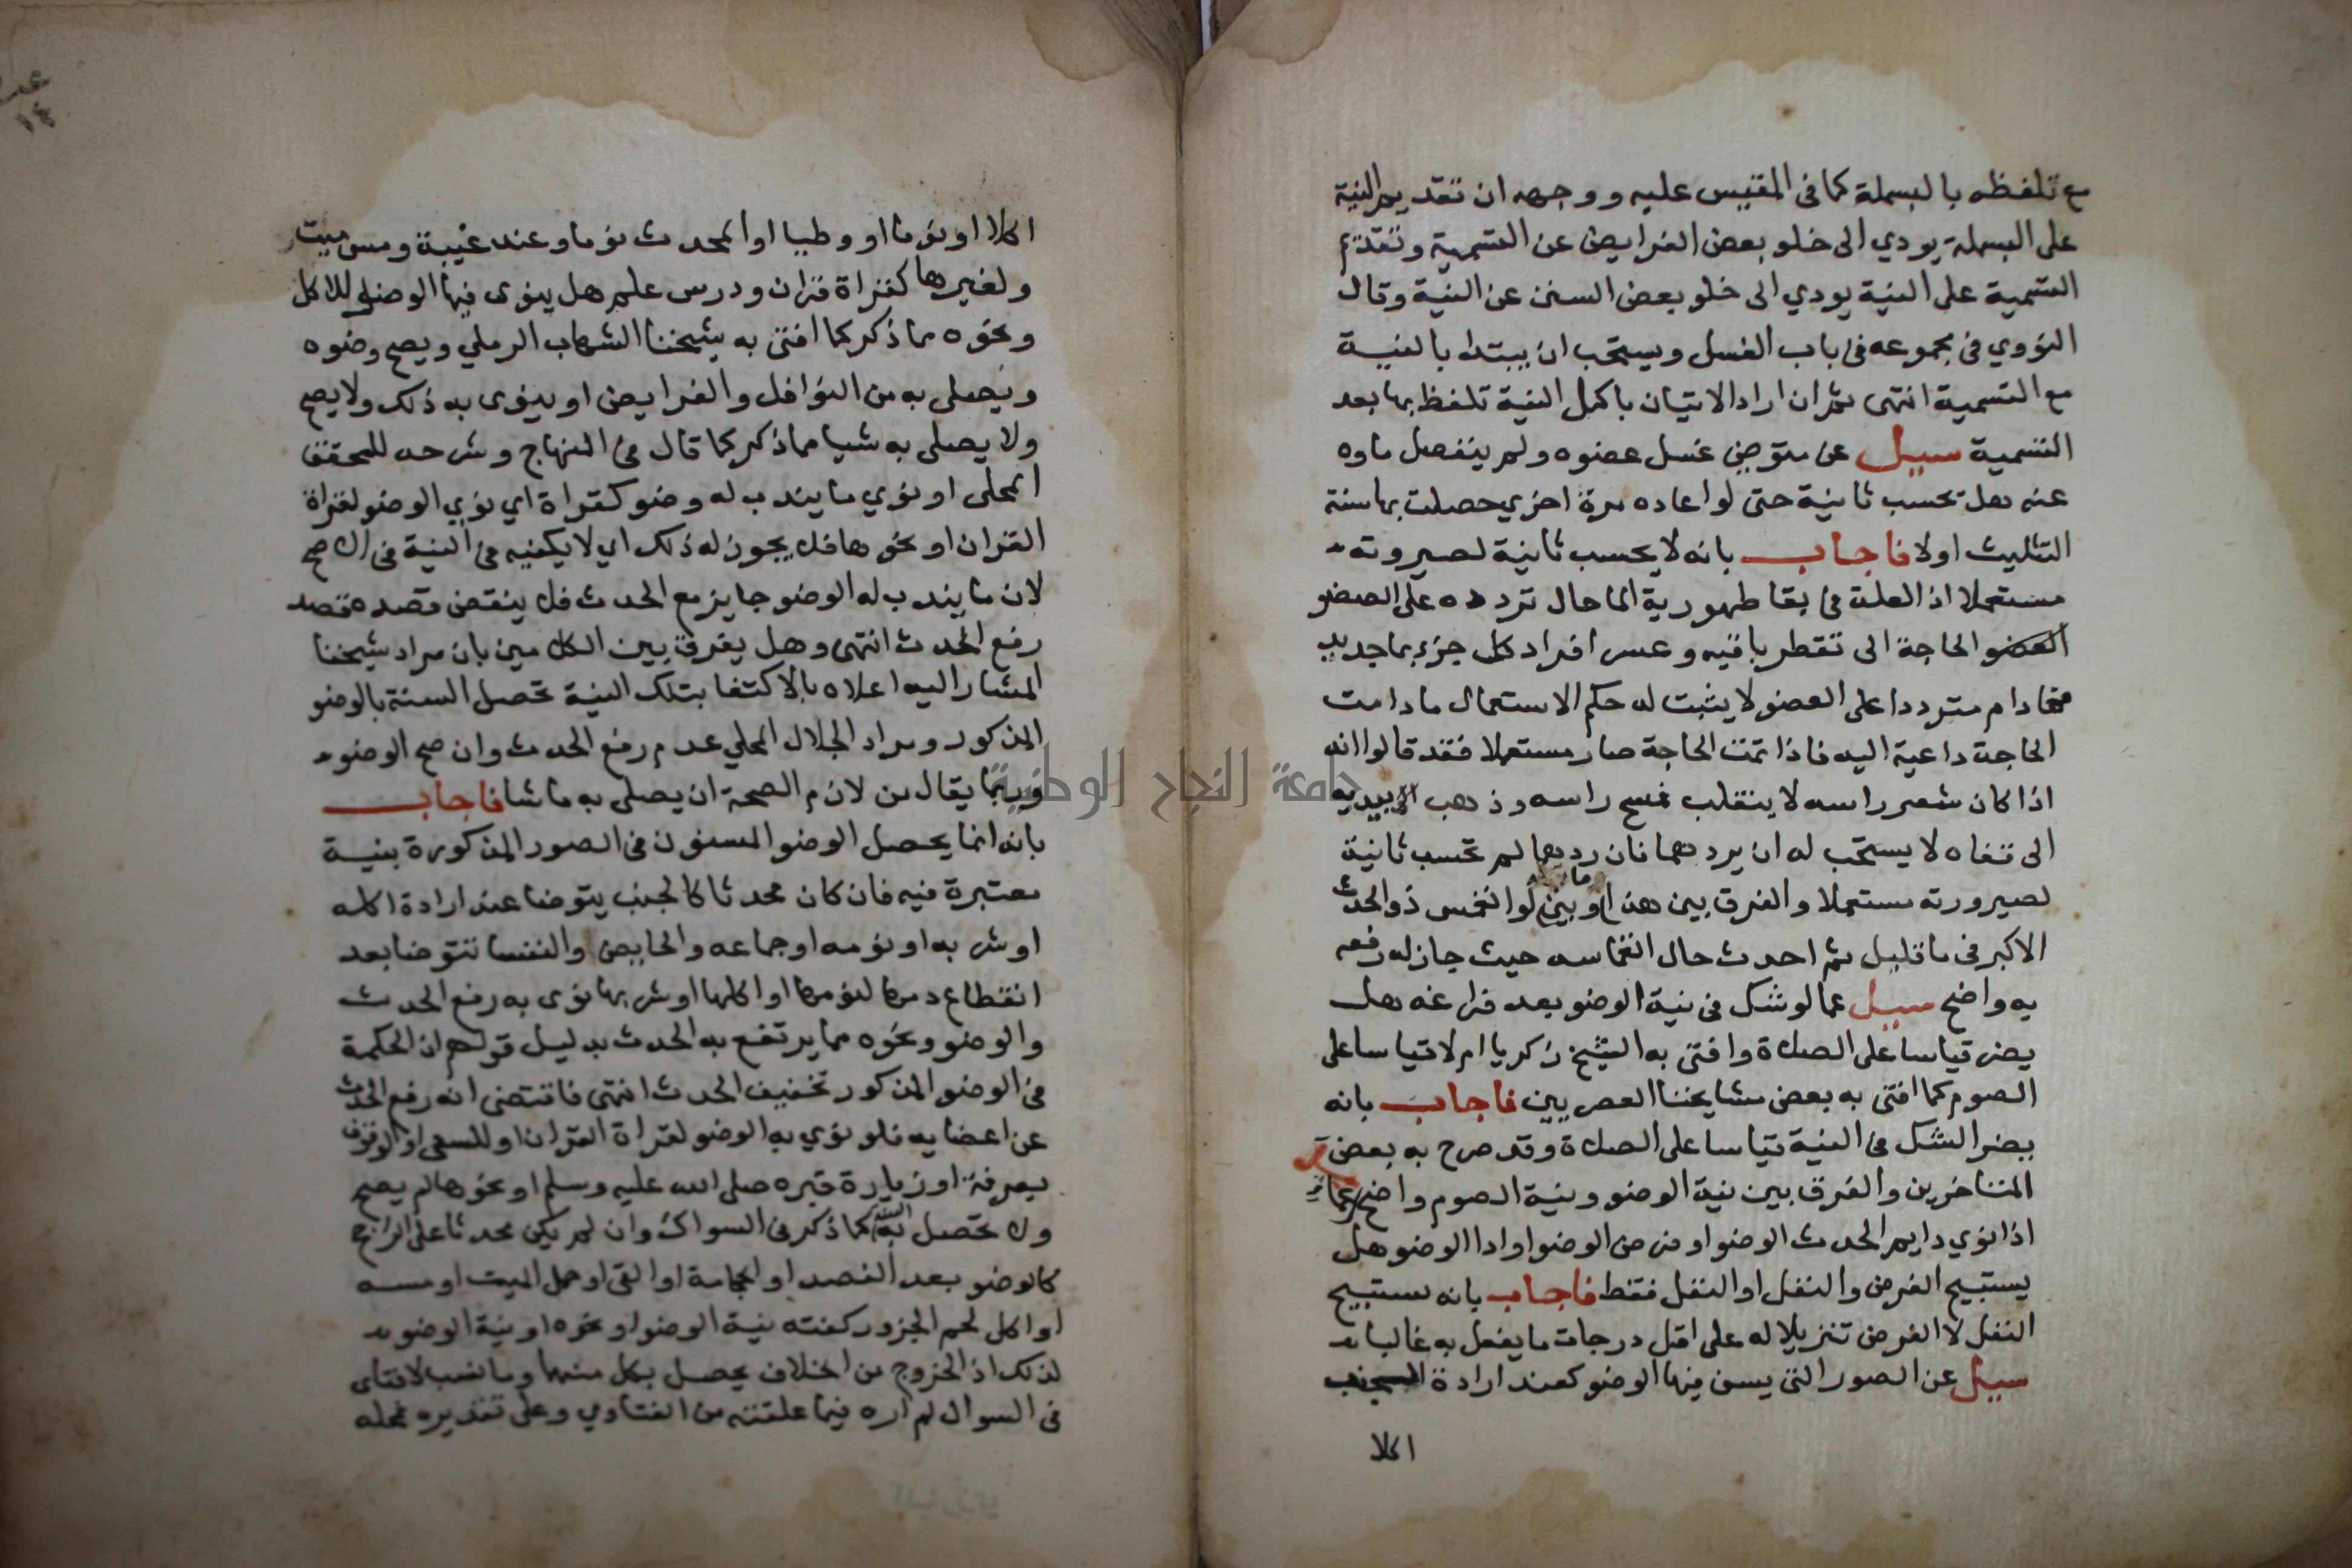 مع تلفظه بالبسملة كما في المقيس عليه ووجهه ان تقديم النية
على البسملة يودي الى خلو بعض الفرايض عن التسمية وتقدم
التسمية على النية يودي الى خلو بعض السنن عن النية وقال
النووي في مجموعه في باب الغسل ويستحب ان يبتدا بالنية
مع التسمية انتهى ثم ان اراد الاتيان باكمل النية تلفظ بها بعد
التسمية سيل عن متوضئ غسل عضوه ولم ينفصل ماوه
عنه هل تحسب ثانية حتى لو اعاده مرة اخري حصلت بها سنة
التثليث اولا فاجاب بانه لا يحسب ثانية لصيرورته
مستعملا اذ العلة في بقا طهورية الما حال تردده على العضو
الحاجة الى تقطر باقيه وعسر افراد كل جزء بما جديد
فما دام مترددا على العضو لا يثبت له حكم الاستعمال ما دامت
الحاجة داعية اليه فاذا تمت الحاجة صار مستعملا فقد قالوا انه
اذا كان شعر راسه لا ينقلب فمسح راسه وذهب بيديه
الى قفاه لا يستحب له ان يردهما فان ردهما لم تحسب ثانية
لصيرورته مستعملا والفرق بين هذا وبين ما لو انغمس ذو الحدث
الاكبر في ما قليل ثم احدث حال انغماسه حيث جاز له رفعه
به واضح سيل عما لو شك في نية الوضو بعد فراغه هل
يضر قياسا على الصلاة وافتى به الشيخ زكريا ام لا قياسا على
الصوم كما افتى به بعض مشايخنا العصريين فاجاب بانه
يضر الشك في النية قياسا على الصلاة وقد صرح به بعض
المتاخرين والفرق بين نية الوضو ونية الصوم واضح عما
اذا نوي دايم الحدث الوضو او فرض الوضو او ادا الوضو هل
يستبيح الفرض والنفل او النفل فقط فاجاب بانه يستبيح
النفل لا الفرض تنزيلا له على اقل درجات ما يفعل به غالبا
سيل عن الصور التي يسن فيها الوضو كعند ارادة الجنب
اكلا
اكلا او نوما او وطيا او المحدث نوما وعند غيبة ومس ميت
ولغيرها كقراة قران ودرس علم هل ينوى فيها الوضو للاكل
ونحوه مما ذكر كما افتى به شيخنا الشهاب الرملي ويصح وضوه
ويصلى به من النوافل والفرايض او ينوى به ذلك ولا يصح
ولا يصلى به شيا مما ذكر كما قال في المنهاج وشرحه للمحقق
المحلى او نوي ما يندب له وضو كقراة اي نوي الوضو لقراة
القران او نحوها فلا يجوز له ذلك اي لا يكفيه في النية في الاصح
لان ما يندب له الوضو جايز مع الحدث فلا ينقض قصده قصد
رفع الحدث انتهى وهل يفرق بين الكلامين بان مراد شيخنا
المشار اليه اعلاه بالاكتفا بتلك النية تحصل السنة بالوضو
المذكور ومراد الجلال المحلي عدم رفع الحدث وان صح الوضو
وربما يقال من لازم الصحة ان يصلى به ما شا فاجاب
بانه انما يحصل الوضو المسنون في الصور المذكورة بنية
معتبرة فيه فان كان محدثا كالجنب يتوضا عند ارادة اكله
او شربه او نومه او جماعه والحايض والنفسا تتوضا بعد
انقطاع دمها لنومها او اكلها او شربها نوى به رفع الحدث
والوضو ونحوه مما يرتفع به الحدث بدليل قولهم ان الحكمة
في الوضو المذكور تخفيف الحدث انتهى فاقتضى انه رفع الحدث
عن اعضايه فلو نوي به الوضو لقراة القران او للسعى او الوقوف
بعرفة او زيارة قبره صلى الله عليه وسلم او نحوها لم يصح
ولا تحصل به السنة كما ذكر في السواك وان لم يكن محدثا على الراجح
كالوضو بعد الفصد او الحجامة او القى او حمل الميت او مسه
او اكل لحم الجزور كفته نية الوضو او نحوه او نية الوضو
لذلك اذ الخروج من الخلاف يحصل بكل منهما وما نسب لافتاى
في السوال لم اره فيما علقته من الفتاوي وعلى تقديره فمحله
١٤
جامعة النجاح الوطنية